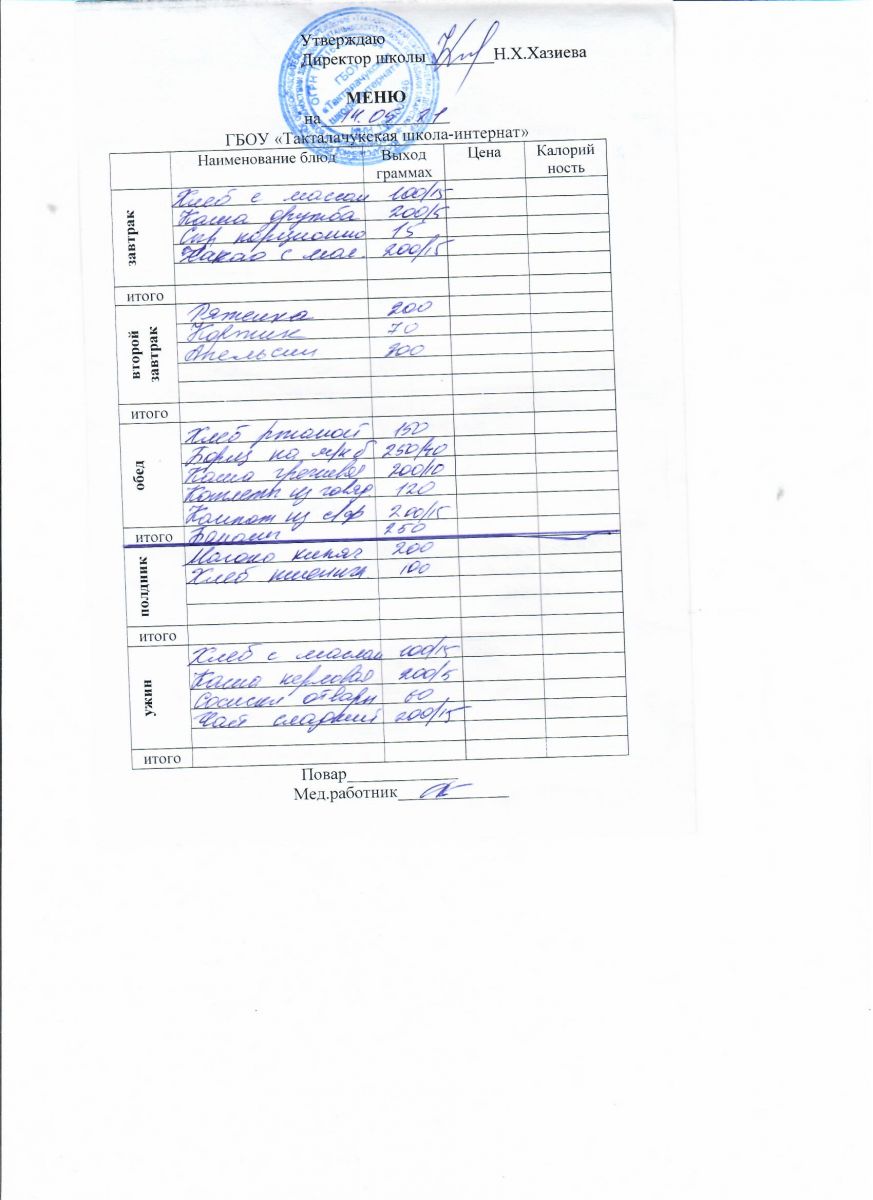 Утверждаю
Директор школы Н.Х.Хазиева
МЕНЮ
на 14.09 21
ГБОУ «Такталачукская школа-интернат»
Наименование блюд Выход граммах Цена Калорий ность
завтрак
Хлеб с маслом 100/15
Каша дружба 200/5
Сыр порционно 15
Какао с мол. 200/15
итого
второй завтрак
Ряженка 200
Коржик 70
Апельсин 200
итого
обед
Хлеб ржаной 150
Борщ на м/к б 250/40
Каша гречневая 200/10
Котлеты из говяд 120
Компот из с/ф 200/15
итого Бананы 250
полдник
Молоко кипяч 200
Хлеб пшенич. 100
итого
ужин
Хлеб с маслом 100/15
Каша перловая 200/5
Сосиски отварн 60
Чай сладкий 200/15
итого
Повар
Мед.работник